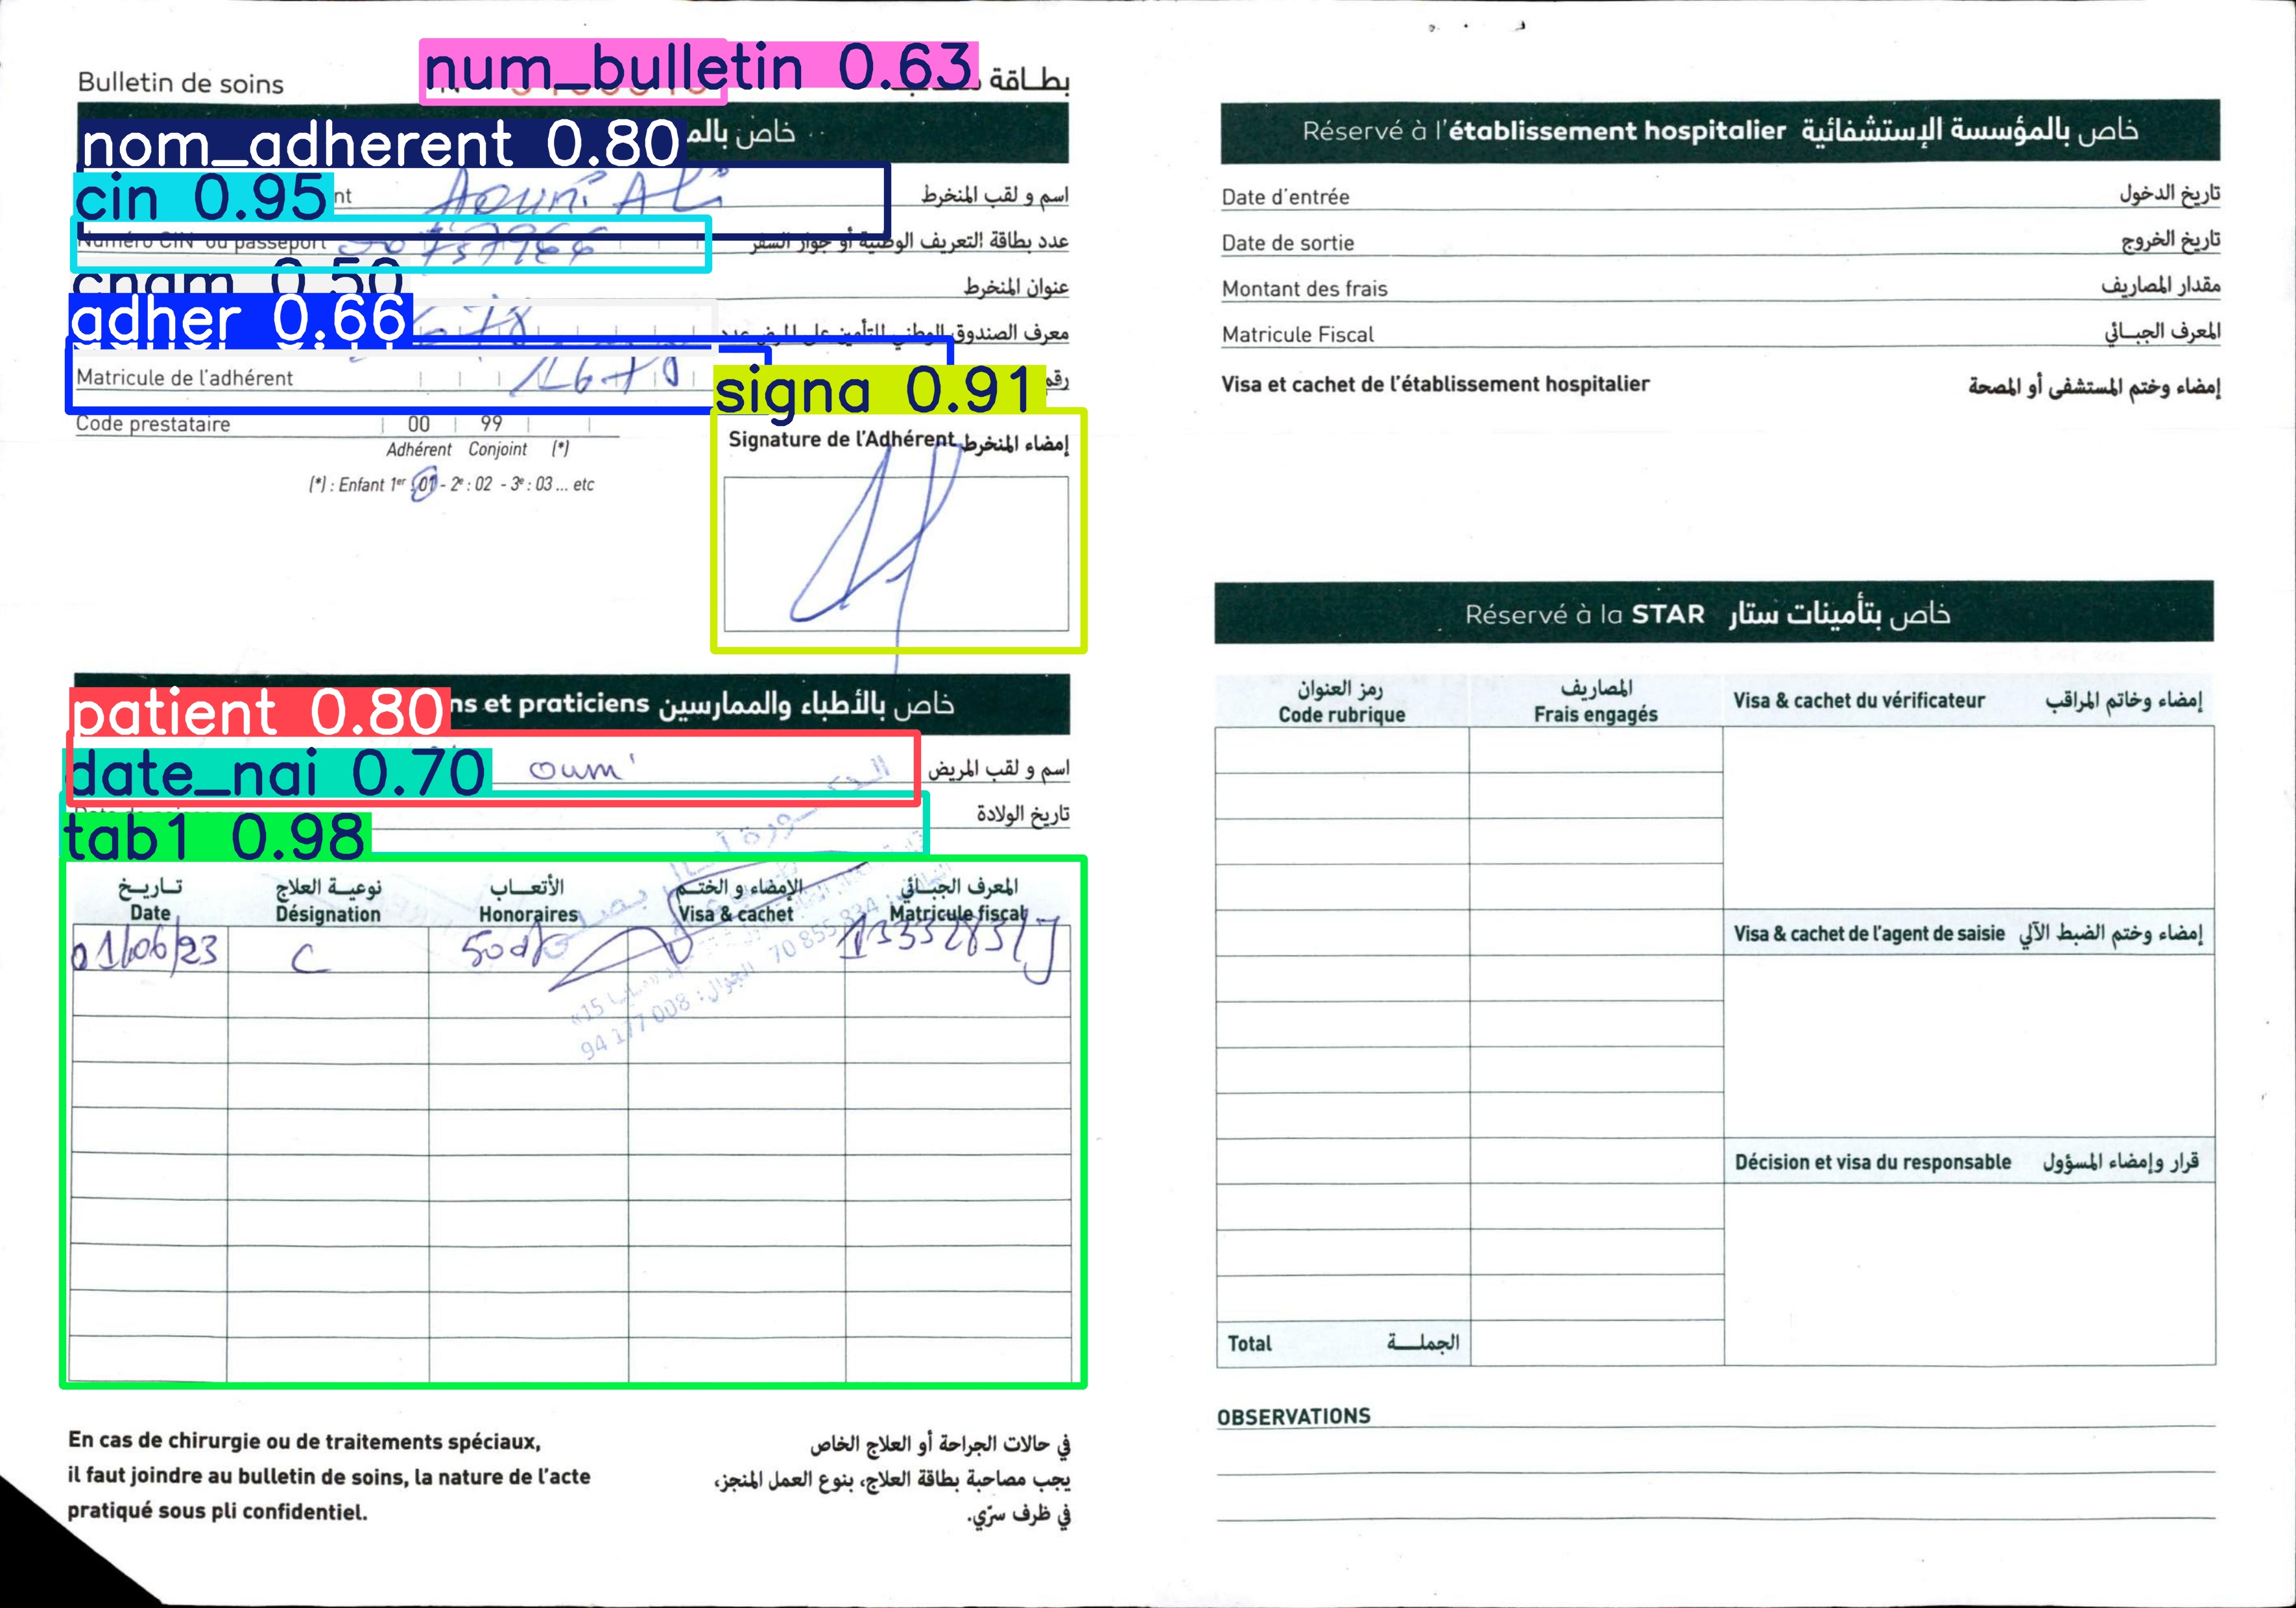 num_bulletin 0.63
Bulletin de soins
بطاقة
nom_adherent 0.80
خاص بالم
cin 0.95
nt Aouni Ali
اسم و لقب المنخرط
Numéro CIN ou passeport
عدد بطاقة التعريف الوطنية أو جواز السفر
cnam 0.50
عنوان المنخرط
adher 0.66
معرف الصندوق الوطني للتأمين على المرض عدد
Matricule de l'adhérent
signa 0.91
Code prestataire 00 99
Adhérent Conjoint (*)
(*) : Enfant 1er : 01 - 2e : 02 - 3e : 03 ... etc
Signature de l'Adhérent إمضاء المنخرط
patient 0.80
ns et praticiens خاص بالأطباء والممارسين
date_nai 0.70
oumi
اسم و لقب المريض
تاريخ الولادة
tab1 0.98
تاريخ نوعية العلاج الأتعاب الإمضاء و الختم المعرف الجبائي
Date Désignation Honoraires Visa & cachet Matricule fiscal
01/06/23 C
70 855 834
94 177 008 الجوال:
En cas de chirurgie ou de traitements spéciaux,
il faut joindre au bulletin de soins, la nature de l'acte
pratiqué sous pli confidentiel.
في حالات الجراحة أو العلاج الخاص
يجب مصاحبة بطاقة العلاج، بنوع العمل المنجز،
في ظرف سرّي.
Réservé à l'établissement hospitalier خاص بالمؤسسة الإستشفائية
Date d'entrée تاريخ الدخول
Date de sortie تاريخ الخروج
Montant des frais مقدار المصاريف
Matricule Fiscal المعرف الجبائي
Visa et cachet de l'établissement hospitalier إمضاء وختم المستشفى أو المصحة
Réservé à la STAR خاص بتأمينات ستار
رمز العنوان المصاريف
Code rubrique Frais engagés
Visa & cachet du vérificateur إمضاء وخاتم المراقب
Visa & cachet de l'agent de saisie إمضاء وختم الضبط الآلي
Décision et visa du responsable قرار وإمضاء المسؤول
Total الجملة
OBSERVATIONS